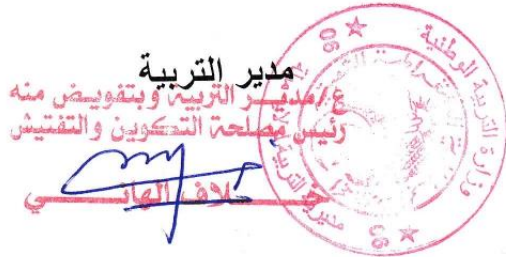 مدير التربية
ع/مديـــر التربية وبتفويـــض منه
رئيس مصلحة التكوين والتفتيش
خــــلاف الهانـــــي
وزارة التربية الوطنية
مديرية التربية